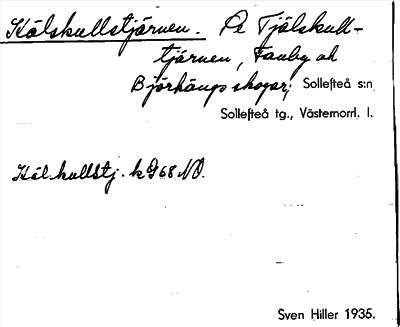 Kälskullstjärnen. På Tjälskull-
tjärnen, Fanby och
Björkängs skogar; Sollefteå s:n
Sollefteå tg., Västernorrl. l.
Käl.kullstj. k G 68 NO.
Sven Hiller 1935.